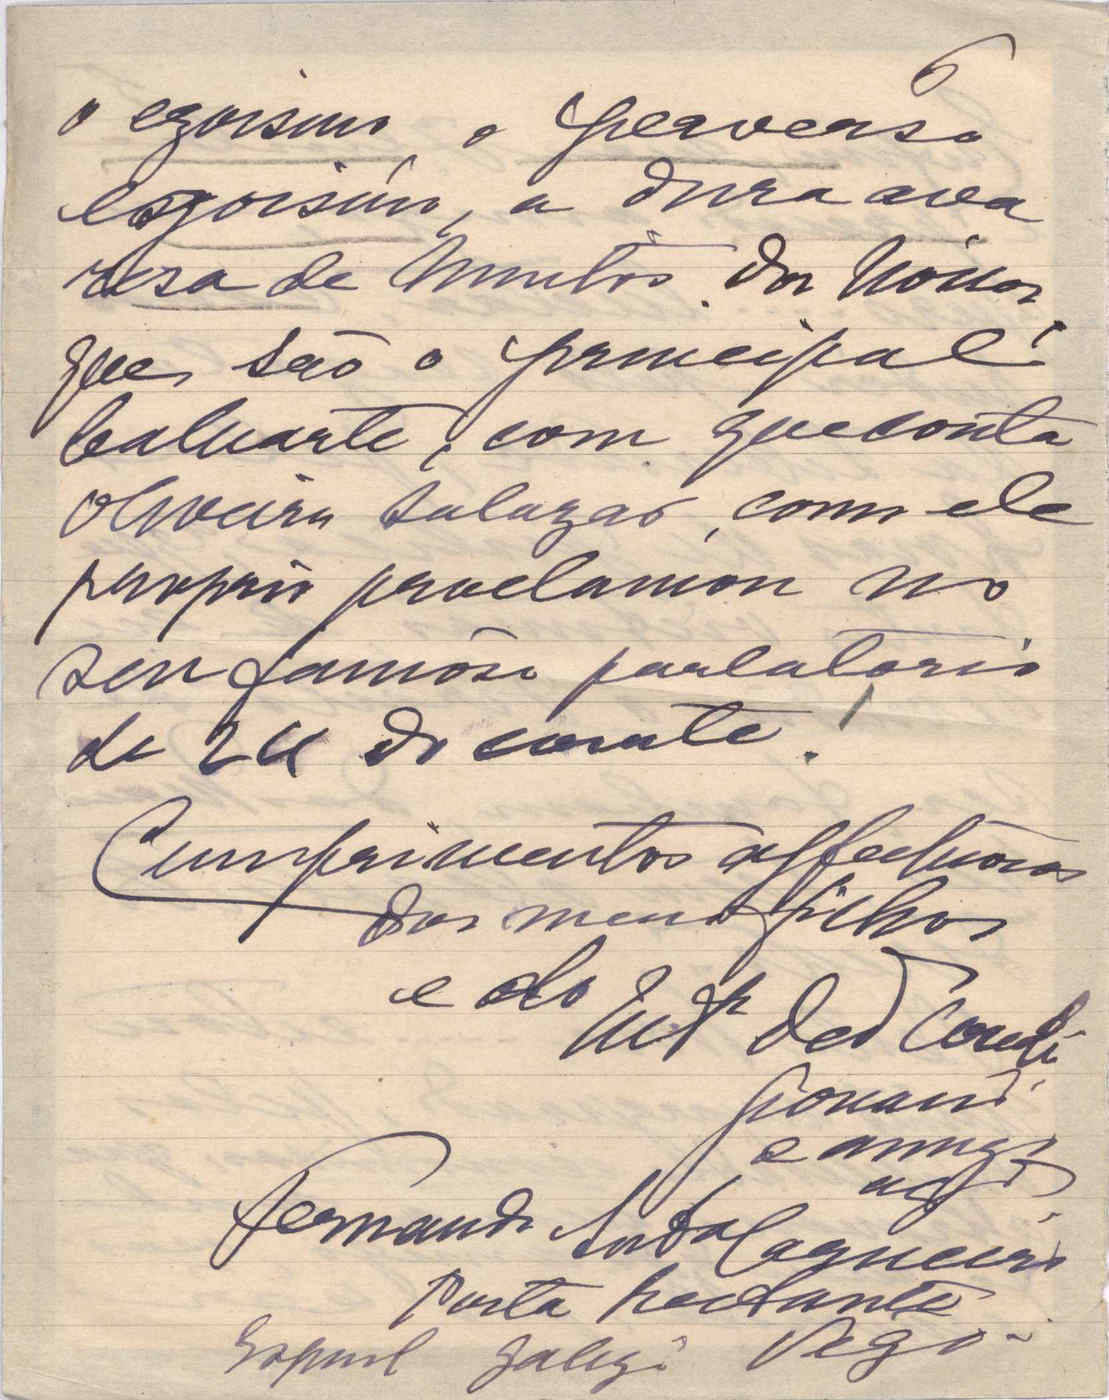 6
o egoismo, o perverso
esgoismo, a dura ava
resa de muitos dos nóssos,
que são o principal
baluarte, com que conta
Oliveira Salazar, como ele
proprio proclamou no
seu famôso parlatorio
de 24 do corrente!
Cumprimentos affectuosos
dos meus filhos
e do
Mtº Dedº Corrélí
gionario
e amigo
Fernando
Posta Restante
Vigo